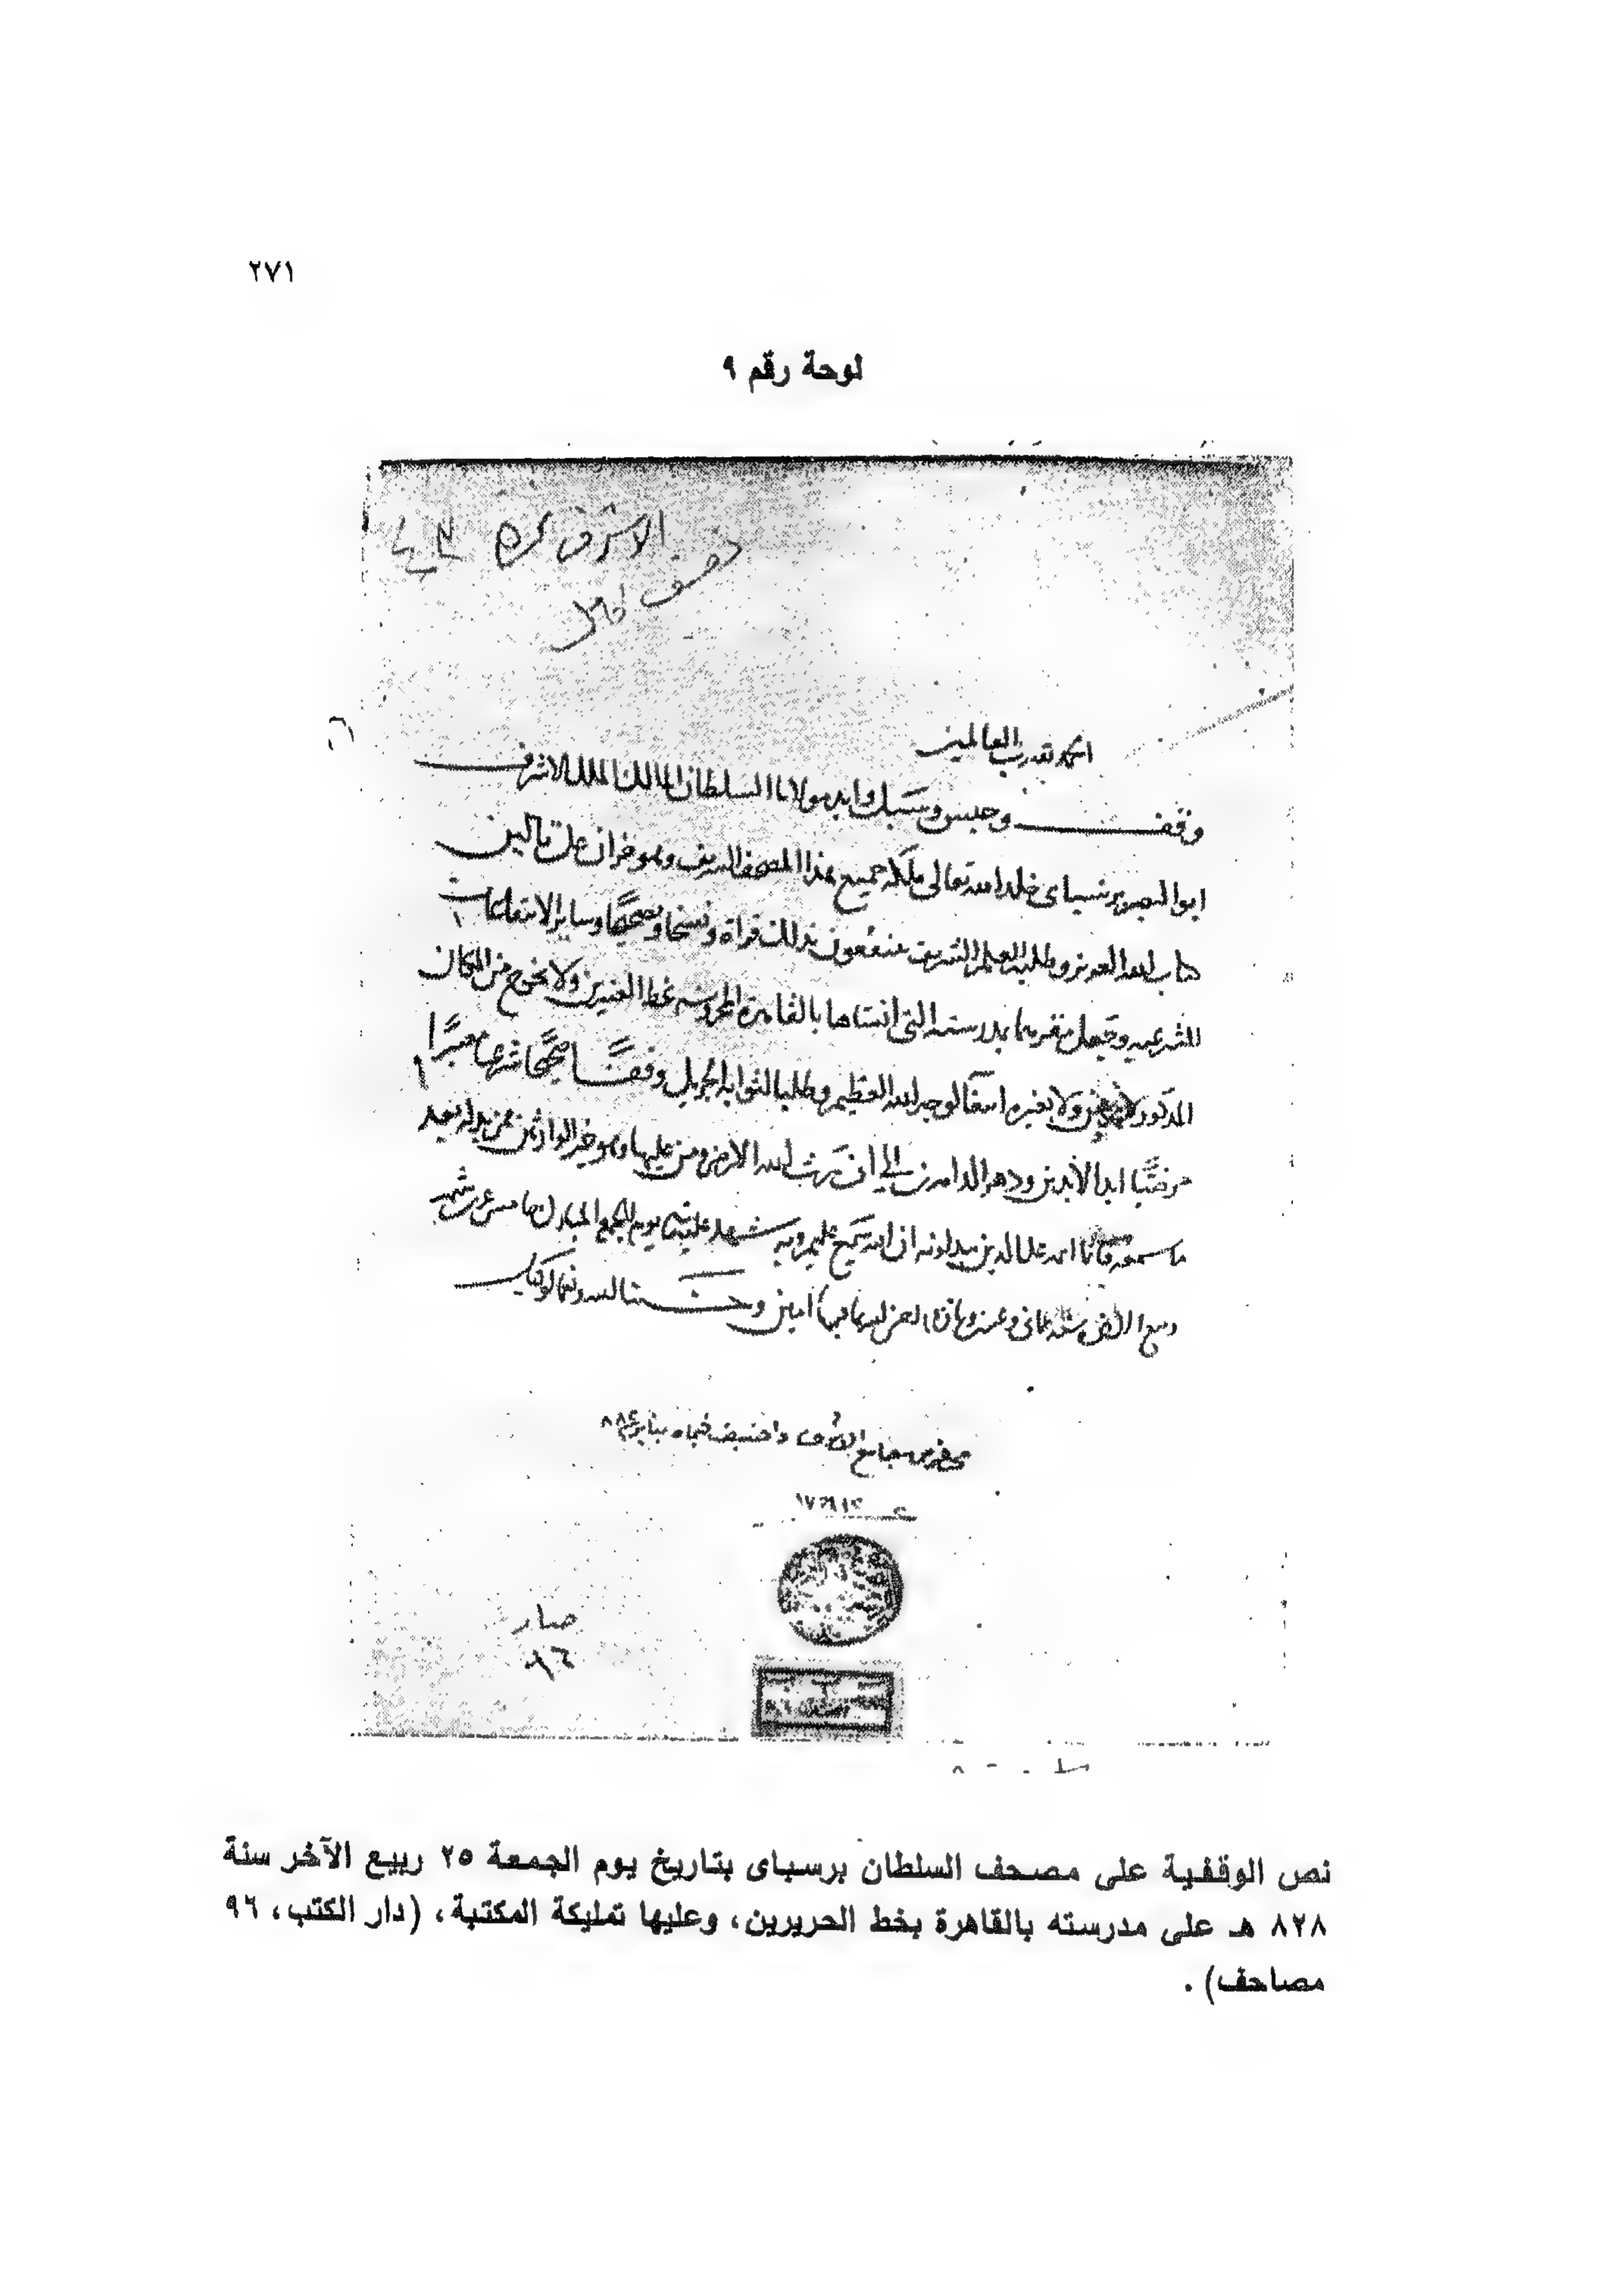 ٢٧١
لوحة رقم ٩
الاشرف
نصف كامل
الحمد لله رب العالمين
وقف وحبس وسبل وابد مولانا السلطان المالك الملك الاشرف
ابو النصر برسباى خلد الله تعالى ملكه جميع هذا المصحف الشريف وهو على تالين
كتاب الله العزيز وطلبة العلم الشريف ينتفعون بذلك قراة ونسخا وساير الانتفاعات
الشرعيه وجعل مقرهما بمدرسته التى انشاها بالقاهرة المحروسه بخط العنبرين ولا يخرج من المكان
المذكور ولا بغيره ابتغا لوجه الله العظيم وطلبا لثوابه الجزيل وقفا صحيحا شرعيا معتبرا
مرضيا ابد الابدين ودهر الداهرين الى ان يرث الله الارض ومن عليها وهو خير الوارثين فمن بدله بعد
ما سمعه فانما اثمه على الذين يبدلونه ان الله سميع عليم وبه شهد عليه يوم الجمع المبارك خامس عشرين شهر
ربيع الاخر سنه ثمانى وعشرين وثمان امين وحسبنا الله ونعم الوكيل
صار
٩٦
نص الوقفية على مصحف السلطان برسباى بتاريخ يوم الجمعة ٢٥ ربيع الآخر سنة
٨٢٨ هـ على مدرسته بالقاهرة بخط الحريرين، وعليها تمليكة المكتبة، (دار الكتب، ٩٦
مصاحف) .